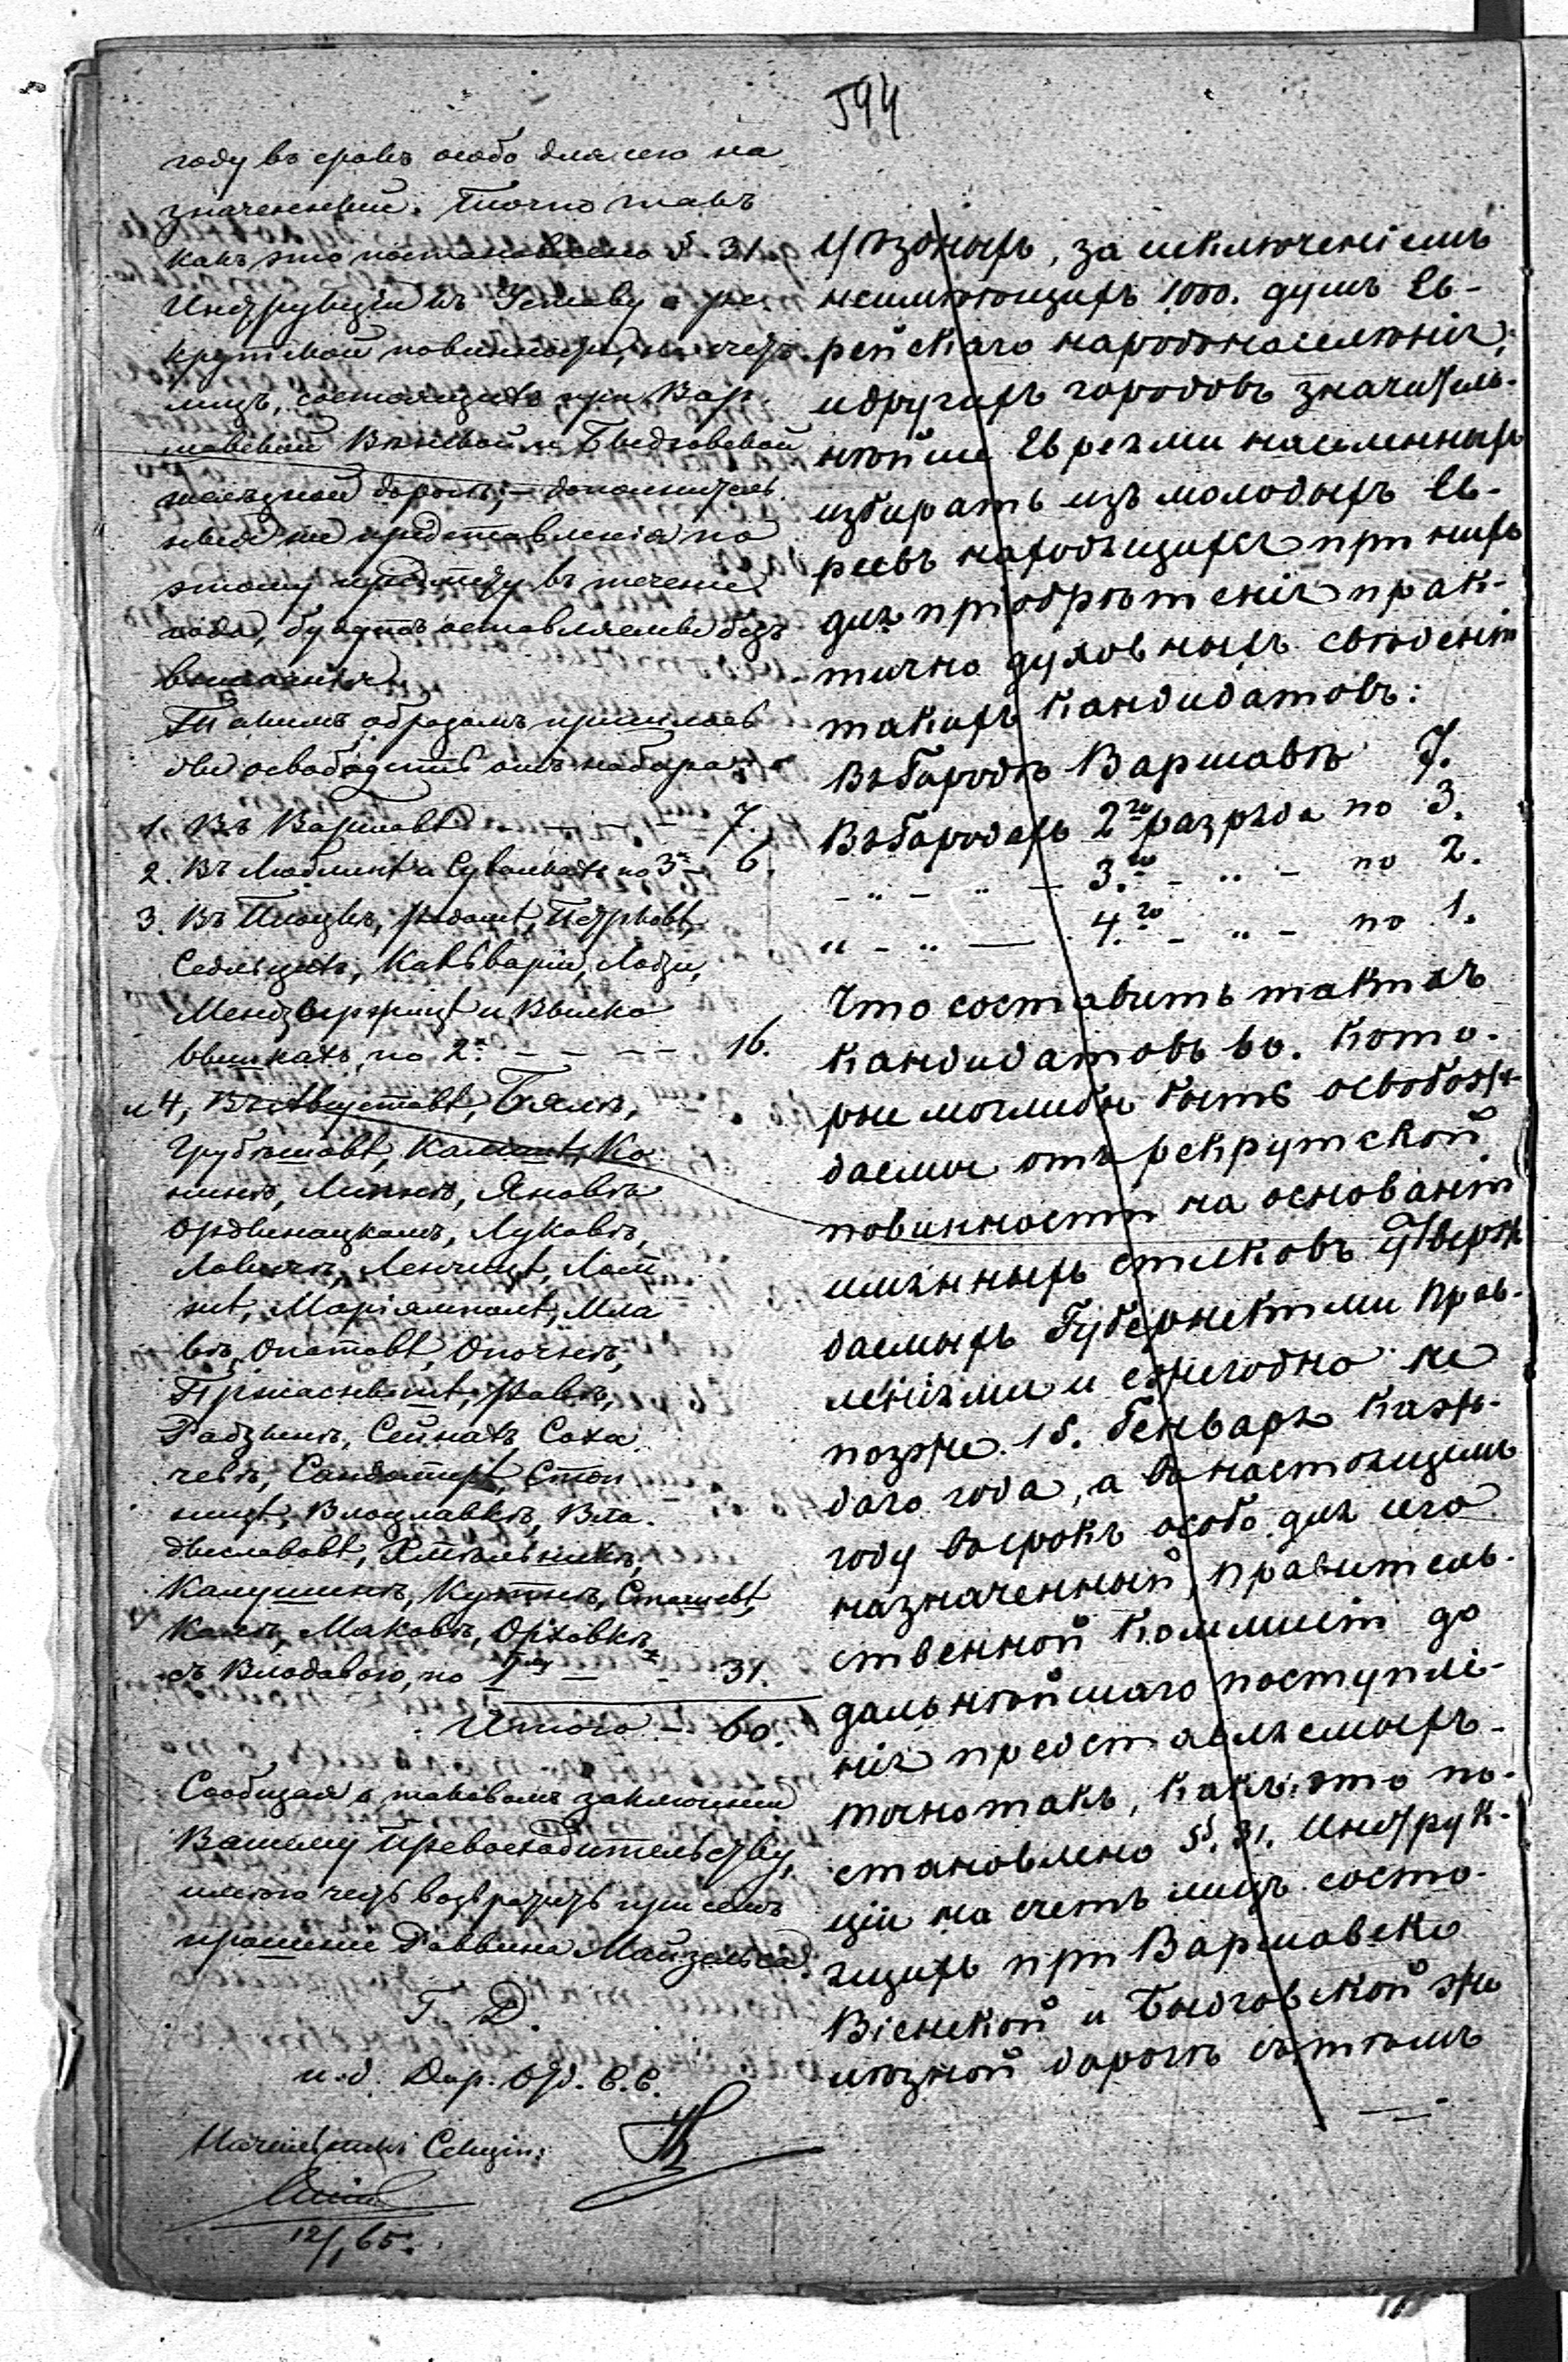 594
году въ срокъ особо для сего на
значенный. Точно такъ
какъ это постановлено § 31.
Инструкціи къ Уставу о ре-
крутской повинности, на счетъ
лицъ, состоящихъ при Вар-
шавской Вѣнской и Быдговской
желѣзной дорогѣ; – дополнитель-
ныя же представленія по
этому предмету въ теченіе
года, будутъ оставляемы безъ
вниманія.
Такимъ образомъ пришлось
бы освободить отъ набора
1. Въ Варшавѣ – – – – 7.
2. Въ Люблинѣ и Сувалкахъ по 3 – 6.
3. Въ Плоцкѣ, Радомѣ, Петрковѣ,
Седльцахъ, Кальваріи, Лодзи,
Мендзыржицѣ и Вылко
вышкахъ, по 2. – – – – 16.
и 4, Въ Августовѣ, Бялѣ,
Грубѣшовѣ, Калишѣ, Ко
нинѣ, Липнѣ, Яновѣ
Ордынацкомъ, Луковѣ,
Ловичѣ, Ленчицѣ, Лом
жѣ, Маріямполѣ, Мла
вѣ, Опатовѣ, Опочнѣ,
Пржаснышѣ, Равѣ,
Радзынѣ, Сейнахъ, Соха
чевѣ, Сандомирѣ, Стоп
ницѣ, Влоцлавкѣ, Вла-
диславовѣ, Хмѣльникѣ,
Калушинѣ, Кутнѣ, Сташевѣ,
Колѣ, Маковѣ, Орховкѣ
съ Влодавою, по 1му – – 31.
Итого – 60.
Сообщая о таковомъ заключеніи
Вашему Превосходительству,
имѣю честь возвратить при семъ
прошеніе Раввина Майзельса.
Г. Д.
и. д. Дир. Отд. С. С.
Начальникъ Секціи:
12/1 65.
Уѣздныхъ, за исключеніемъ
неимѣющихъ 1000. душъ Ев-
рейскаго народонаселенія;
и другихъ городовъ значитель-
нѣйше Евреями населенныхъ
избирать изъ молодыхъ Ев-
реевъ находящихся при нихъ
для пріобрѣтенія прак-
тично духовныхъ свѣденій
такихъ кандидатовъ:
Въ Городѣ Варшавѣ 7.
Въ Городахъ 2го разряда по 3.
– „ – „ – 3го – „ – по 2.
„ – „ – 4го – „ – по 1.
Что составитъ таковыхъ
кандидатовъ 60. Кото-
рые моглибы быть освобож-
даемы отъ рекрутской
повинности на основаніи
имянныхъ списковъ утверж
даемыхъ Губернскими Прав-
леніями и ежегодно не
позже 15. Генваря каж-
даго года, а въ настоящемъ
году въ срокъ особо для сего
назначенный, Правитель-
ственной Коммисіи до
дальнѣйшаго поступле-
нія представляемыхъ
точно такъ, какъ это по-
становлено §. 31. Инструк-
ціи на счетъ лицъ состо-
ящихъ при Варшавско
Вѣнской и Быдговской же
лѣзной дорогѣ съ тѣмъ